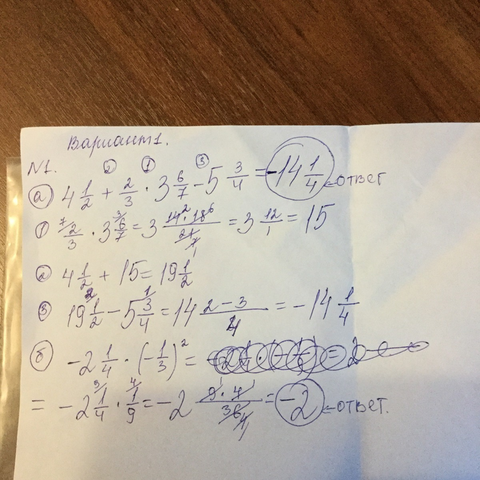 Вариант 1.
N1. ② ① ③
а) 4 1/2 + 2/3 · 3 6/7 - 5 3/4 = -14 1/4 ← ответ
① 2/3 · 3 6/7 = 3 14 · 18/21 = 3 12/1 = 15
② 4 1/2 + 15 = 19 1/2
③ 19 1/2 - 5 3/4 = 14 2-3/4 = -14 1/4
б) -2 1/4 · (-1/3)² =
= -2 1/4 · 1/9 = -2 9·4/36 = -2 ← ответ.